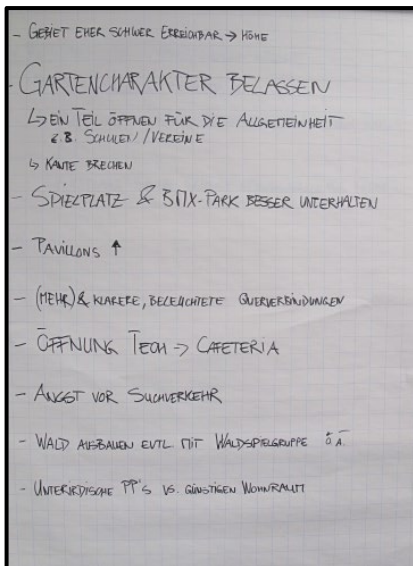 - GEBIET EHER SCHWER ERREICHBAR → HÖHE
- GARTENCHARAKTER BELASSEN
↳ EIN TEIL ÖFFNEN FÜR DIE ALLGEMEINHEIT
z.B. SCHULEN/VEREINE
↳ KANTE BRECHEN
- SPIELPLATZ & BMX-PARK BESSER UNTERHALTEN
- PAVILLONS ↑
- (MEHR) & KLARERE, BELEUCHTETE QUERVERBINDUNGEN
- ÖFFNUNG TECH → CAFETERIA
- ANGST VOR SUCHVERKEHR
- WALD AUSBAUEN EVTL MIT WALDSPIELGRUPPE O.Ä.
- UNTERIRDISCHE PP'S VS. GÜNSTIGEN WOHNRAUM